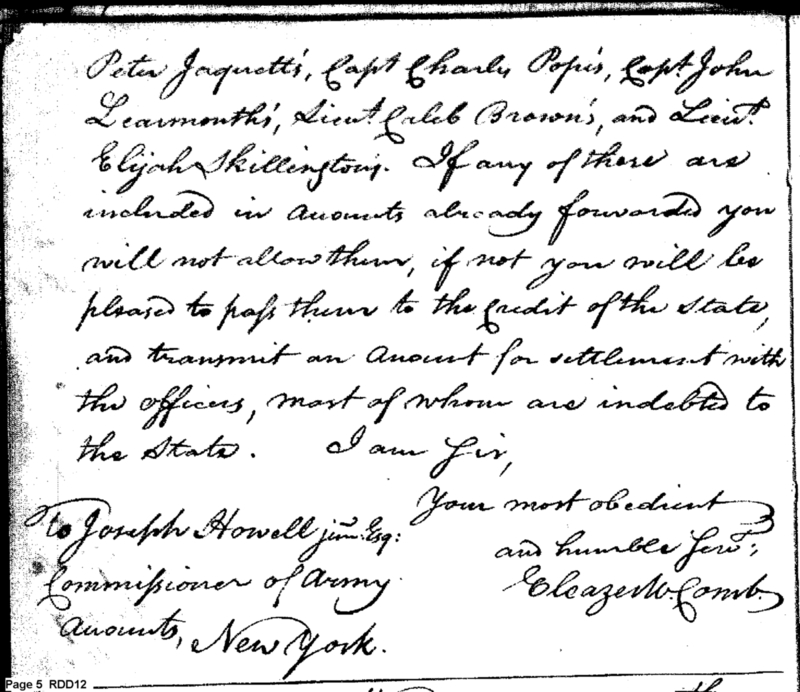 Peter Jaquett's, Capt Charles Pope's, Capt. John
Learmonth's, Lieut. Caleb Brown's, and Lieut.
Elijah Skillington's. If any of these are
included in Accounts already forwarded you
will not allow them, if not you will be
pleased to pass them to the Credit of the State,
and transmit an Account for settlement with
the officers, most of whom are indebted to
the State. I am Sir,
Your most obedient
and humble Servt.,
Eleazer McComb.
to Joseph Howell junr. Esq:
Commissioner of Army
Accounts, New York.
Page 5 RDD12